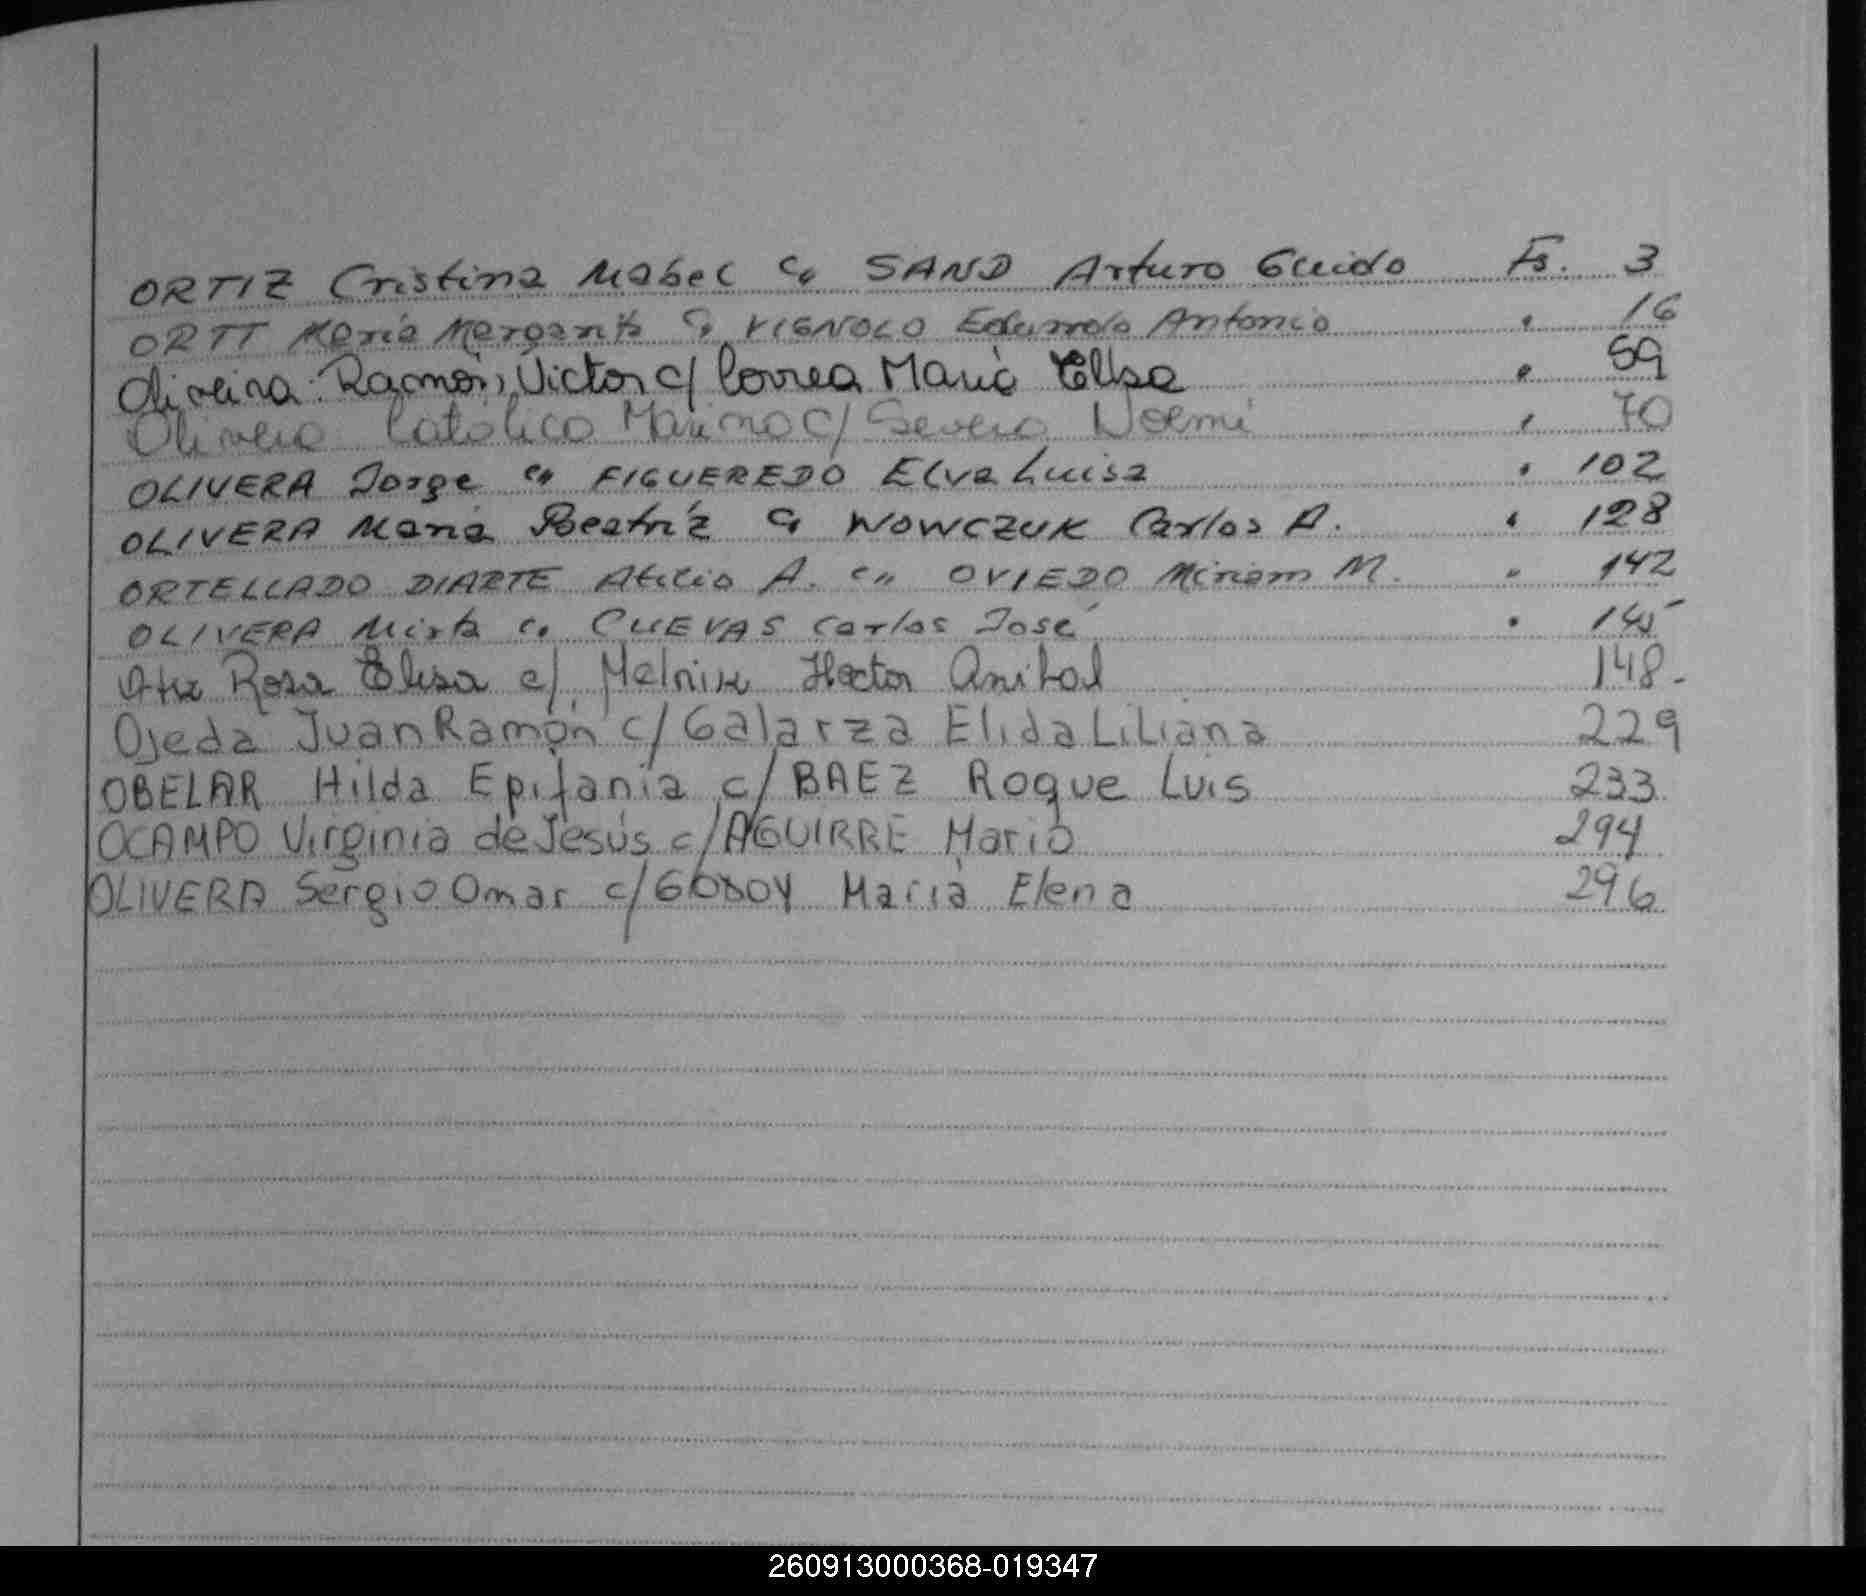 ORTIZ Cristina Mabel c/ SAND Arturo Guido Fs. 3
ORTT María Margarita c/ VIGNOLO Eduardo Antonio " 16
Oliveira: Ramón, Victor c/ Correa María Elisa " 59
Olivera Católico Marino c/ Severo Noemí " 70
OLIVERA Jorge c/ FIGUEREDO Elva Luisa " 102
OLIVERA María Beatríz c/ WOWCZUK Carlos A. " 128
ORTELLADO DIARTE Atilio A. c/ OVIEDO Miriam M. " 142
OLIVERA Mirta c/ CUEVAS Carlos José " 145
Rosa Elisa c/ Melnik Hector Anibal 148.
Ojeda Juan Ramón c/ Galarza Elida Liliana 229
OBELAR Hilda Epifania c/ BAEZ Roque Luis 233
OCAMPO Virginia de Jesús c/ AGUIRRE Mario 294
OLIVERA Sergio Omar c/ GODOY María Elena 296
260913000368-019347